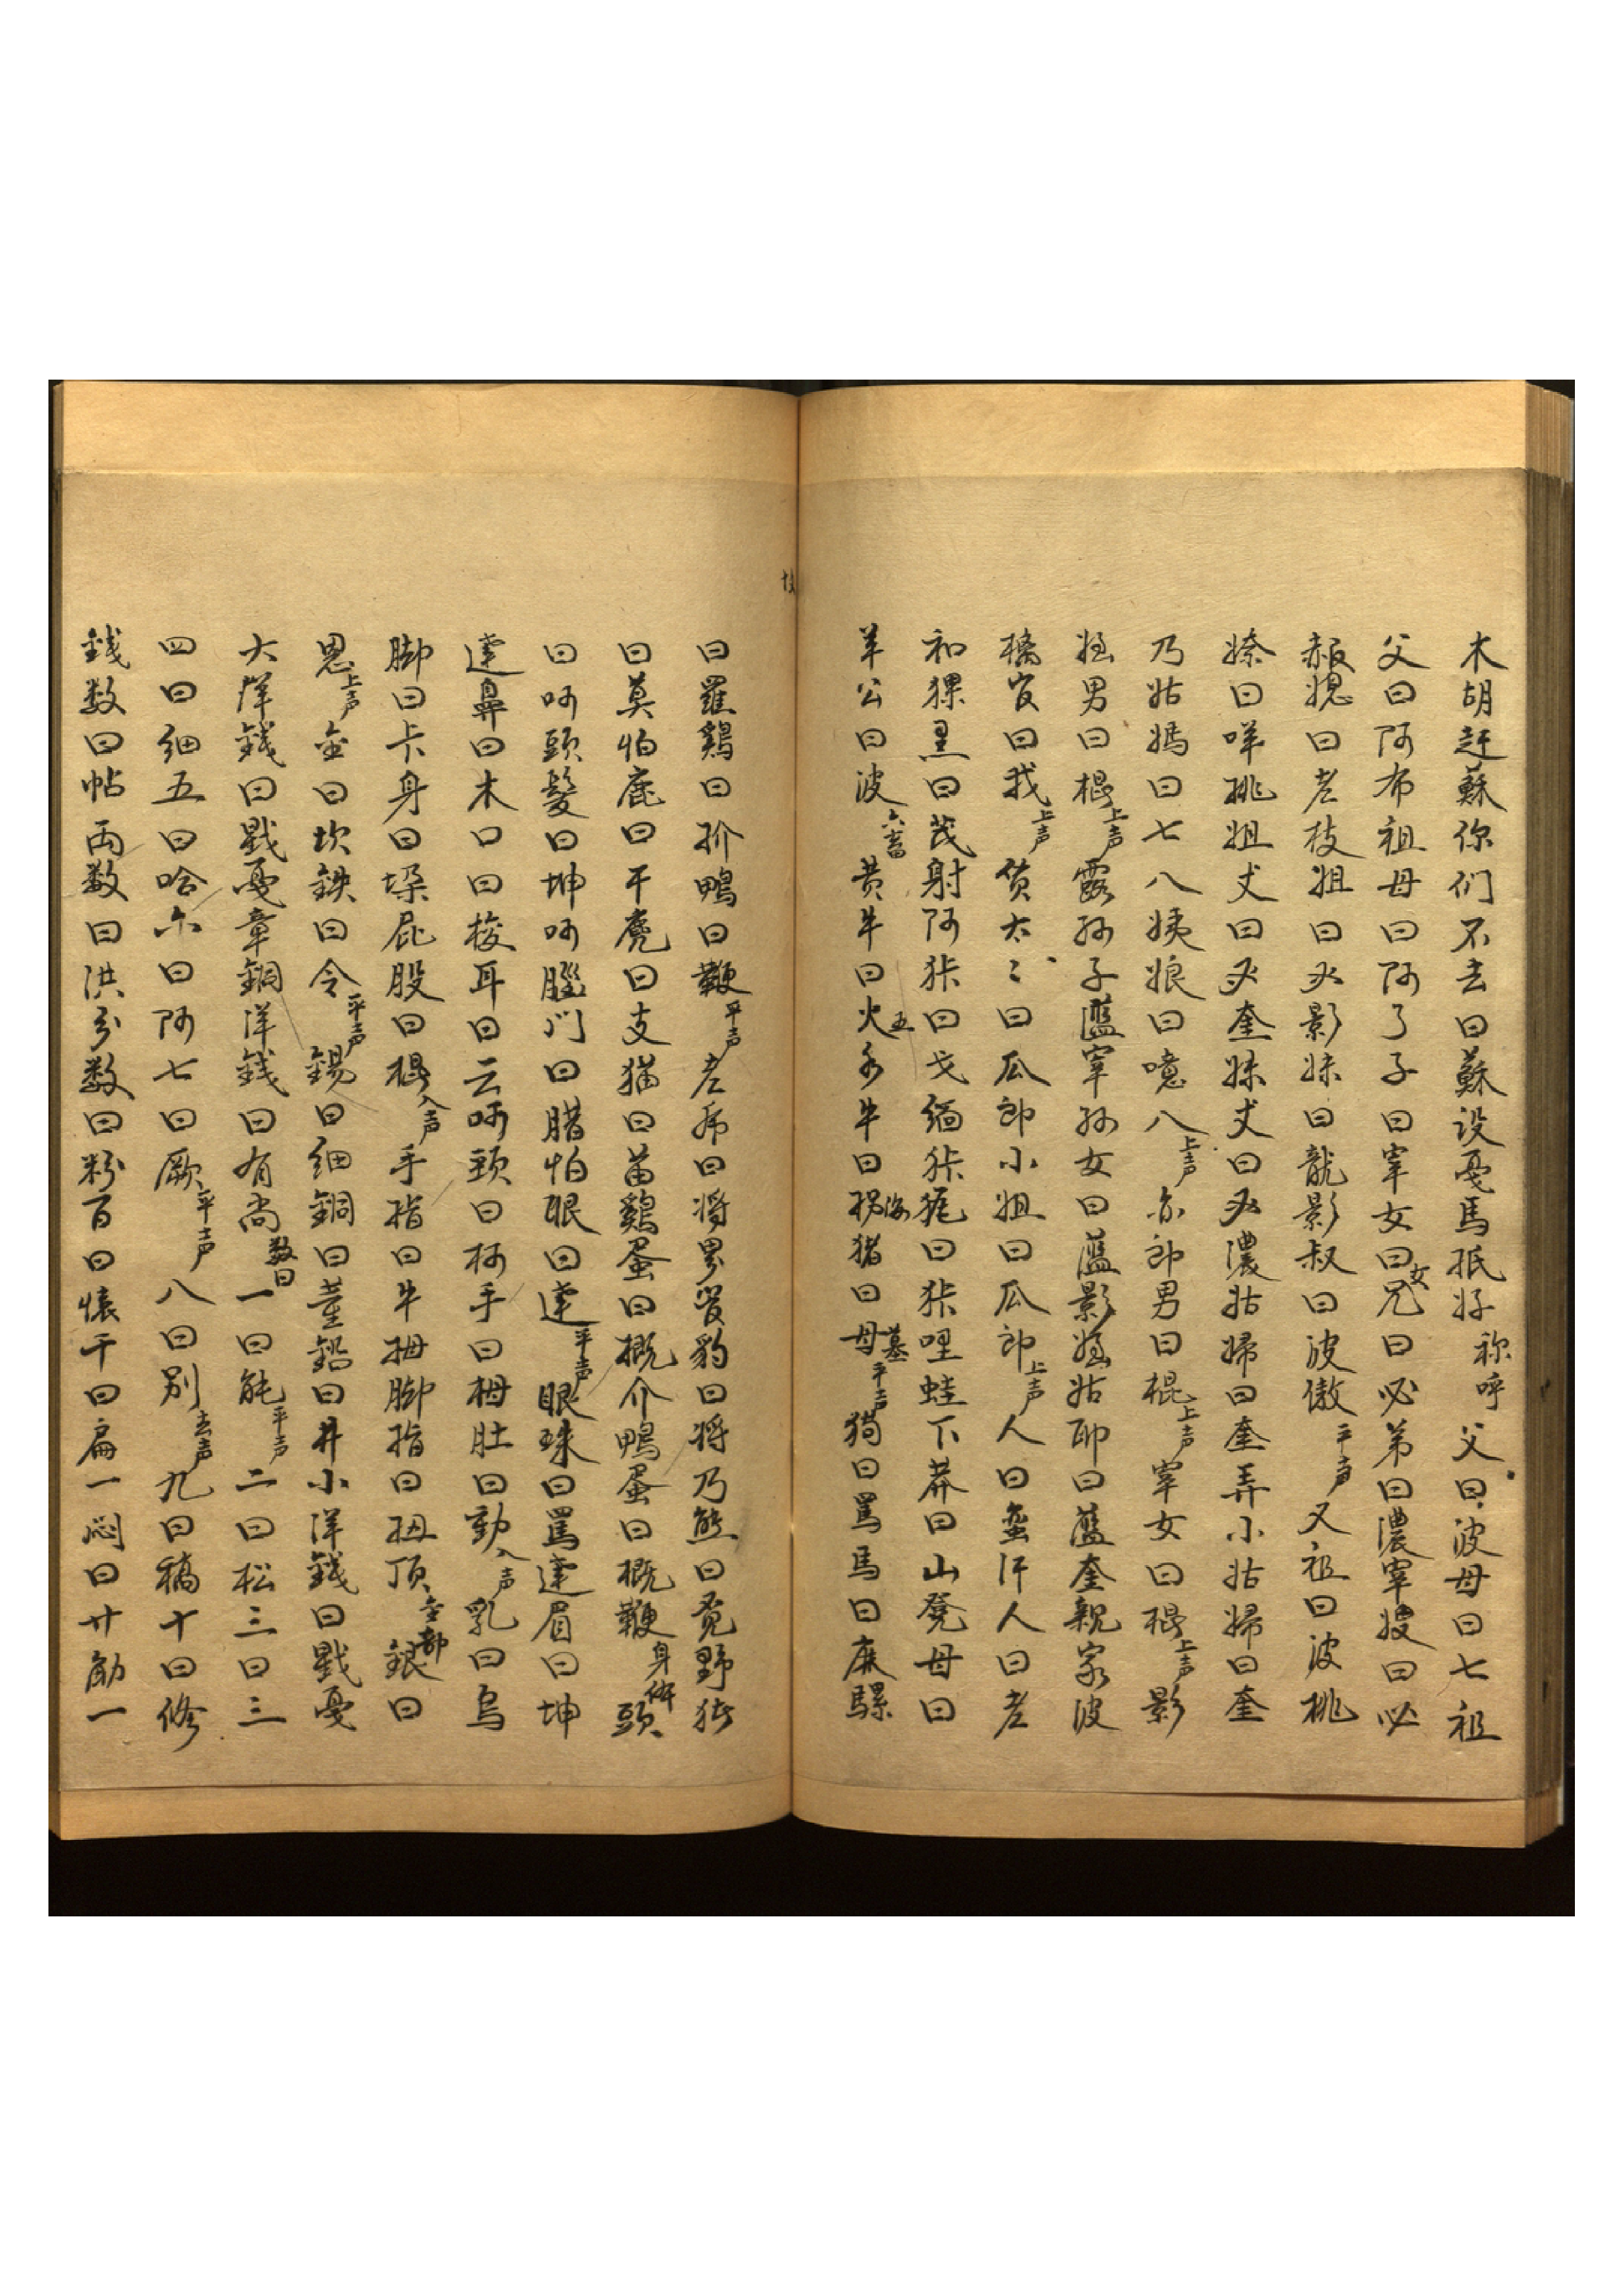 木胡赶蘇你们不去曰蘇设戞馬抵好 称呼 父曰波母曰七祖
父曰阿布祖母曰阿了子曰宰女曰女兄曰必弟曰濃宰嫂曰必
赧媳曰老枝姐曰必影妹曰龍影叔曰波傲平声又祖曰波桃
嫽曰咩桃姐丈曰必奎妹丈曰必濃姑婦曰奎弄小姑婦曰奎
乃姑媽曰七八姨娘曰噫八上声亦郎男曰棍上声宰女曰棍上声影
姪男曰棍上声露孙子藍宰孙女曰藍影姪姑耶曰藍奎親家波
橋官曰我上声贷太〻曰瓜郎小姐曰瓜郎上声人曰蛮汗人曰老
和猓黑曰茂射阿狜曰戈缅狜狔曰狜哩蛙下莽曰山凳母曰
羊公曰波 六畜 黄牛曰火五水牛曰拐海猪曰母墓平声狗曰罵馬曰麻騾
曰羅鷄曰介鴨曰鞭平声老虎曰将男官豹曰将乃熊曰覓野猪
曰莫怕鹿曰干麂曰支猫曰苗鷄蛋曰概介鴨蛋曰概鞭 身体 頭
曰呵頭髮曰坤呵腦门曰腊怕眼曰達平声眼珠曰罵達眉曰坤
達鼻曰木口曰梭耳曰云呵頸曰柯手曰拇肚曰動入声乳曰烏
脚曰卡身曰垜屁股曰棍入声手指曰牛拇脚指曰扭頂 金部 銀曰
恩上声金曰坎鉄曰令平声錫曰细銅曰董鉛曰井小洋錢曰戥戞
大洋錢曰戥戞章銅洋錢曰有尚 数目 一曰能平声二曰松三曰三
四曰细五曰哈六曰阿七曰厥平声八曰别去声九曰稿十曰修
錢数曰帖両数曰洪分数曰粉百曰懐千曰扁一闷曰廿觔一